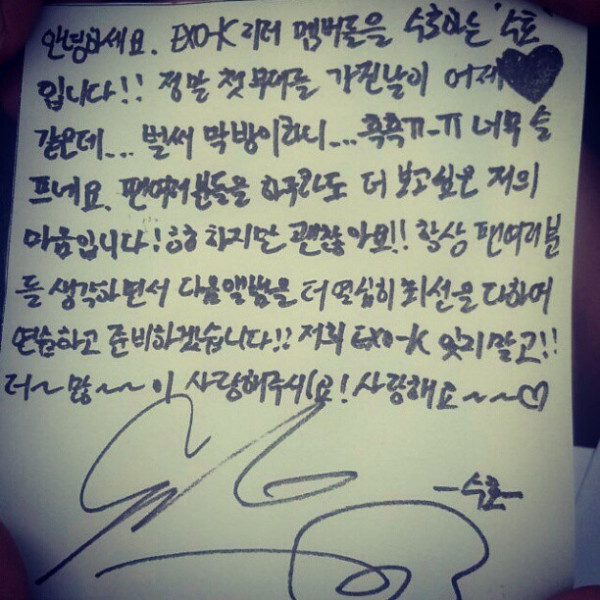 안녕하세요. EXO-K 리더 멤버들을 수호하는 '수호'
입니다!! 정말 첫무대를 가진날이 어제
같은데... 벌써 막방이라니... 흑흑ㅠ-ㅠ 너무 슬
프네요. 팬여러분들을 하루라도 더 보고싶은 저의
마음입니다! ㅎㅎ 하지만 괜찮아요!! 항상 팬여러분
들 생각하면서 다음앨범을 더 열심히 최선을 다하여
연습하고 준비하겠습니다!! 저희 EXO-K 잊지말고!!
더~ 많~~이 사랑해주세요! 사랑해요~~♡
-수호-